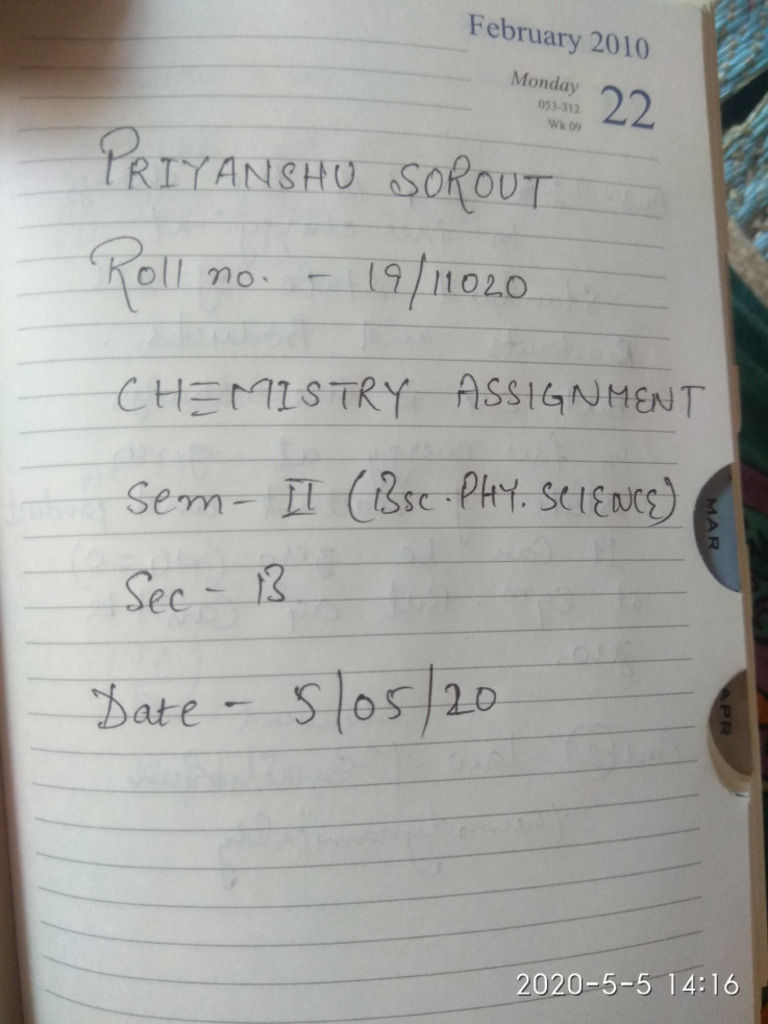 February 2010
Monday
053-312
Wk 09
22
PRIYANSHU SOROUT
Roll no. - 19/11020
CHEMISTRY ASSIGNMENT
Sem - II (Bsc. PHY. SCIENCE)
Sec - B
Date - 5/05/20
MAR
APR
2020-5-5 14:16